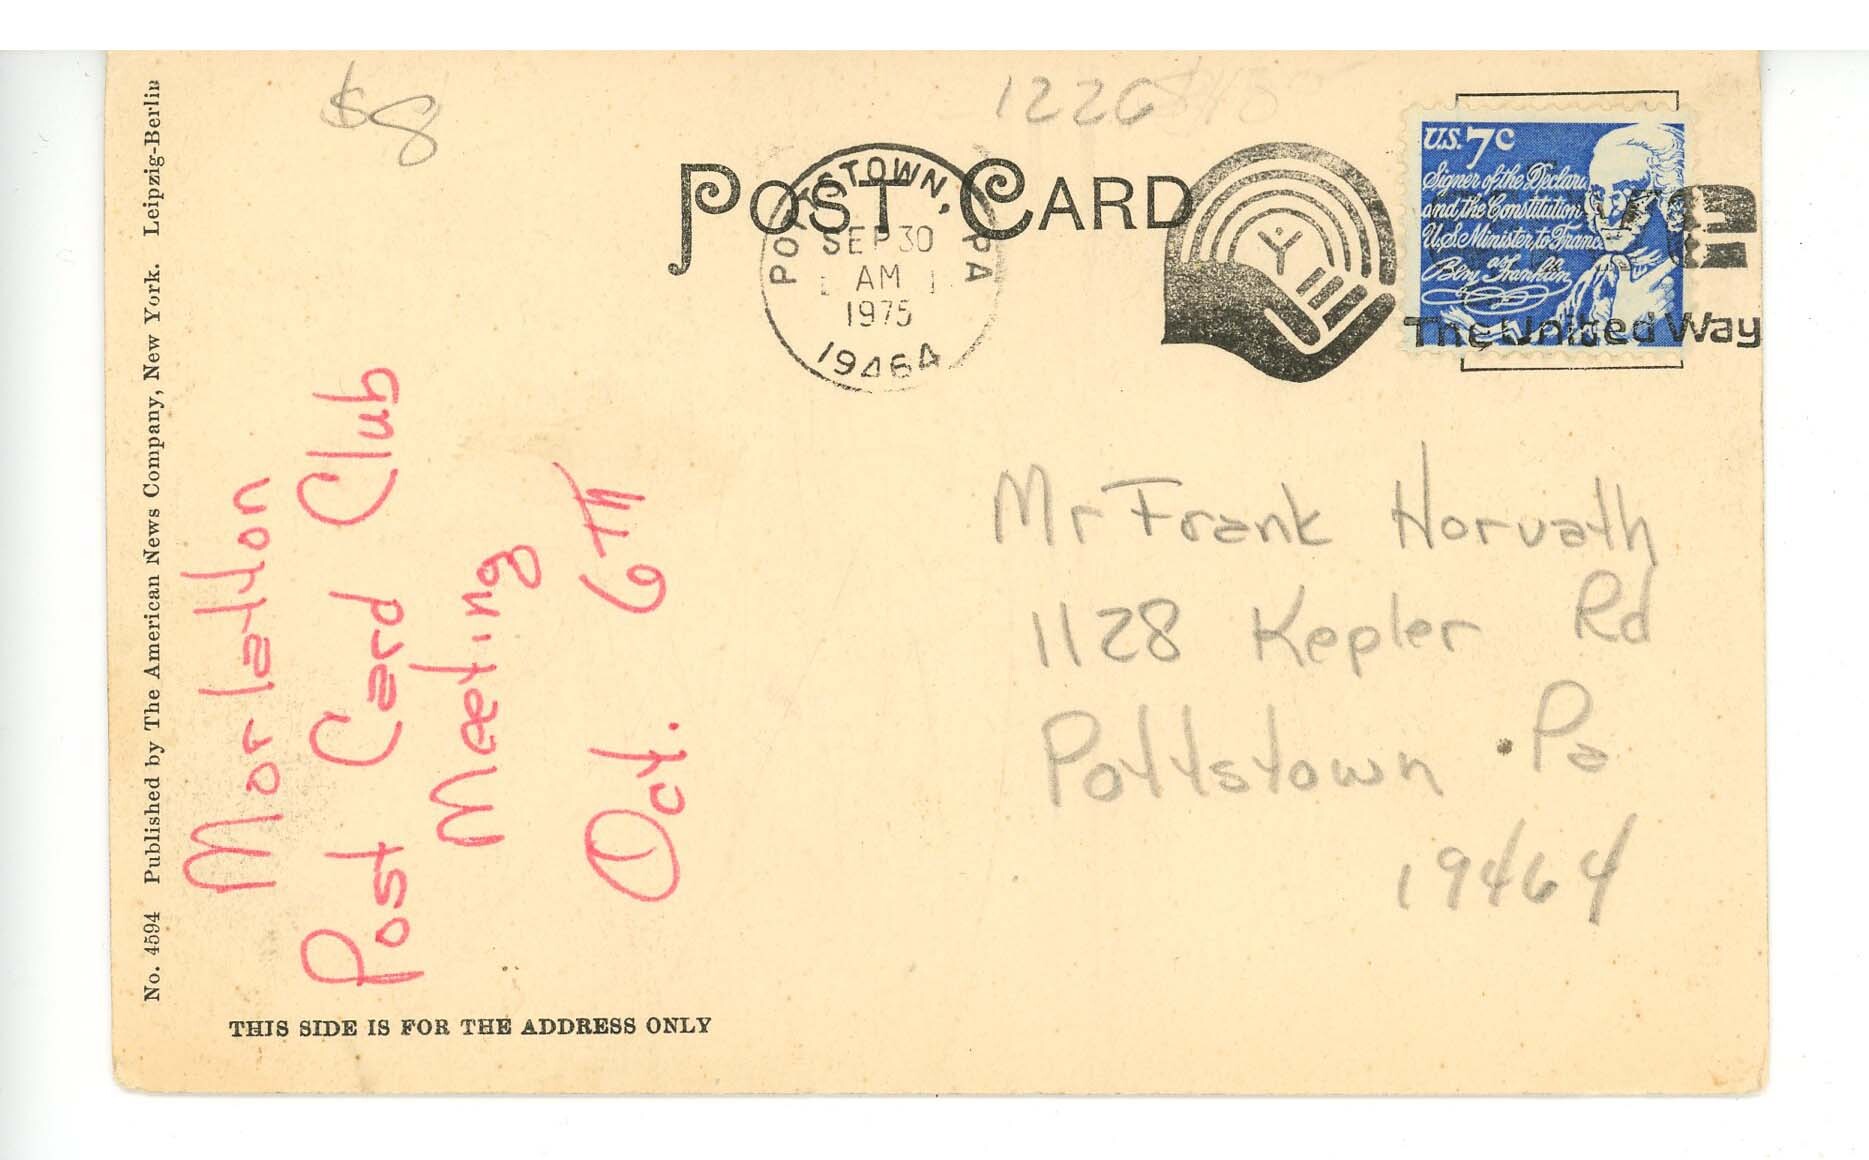 $8
1226
POST CARD
POTTSTOWN, PA
SEP 30
AM
1975
19464
U.S. 7c
Signer of the Declara
and the Constitution
U.S. Minister to France
as
Benj Franklin
The United Way
Morlatton
Post Card Club
Meeting
Oct. 6TH
Mr Frank Horvath
1128 Kepler Rd
Pottstown Pa
19464
No. 4594 Published by The American News Company, New York. Leipzig-Berlin
THIS SIDE IS FOR THE ADDRESS ONLY